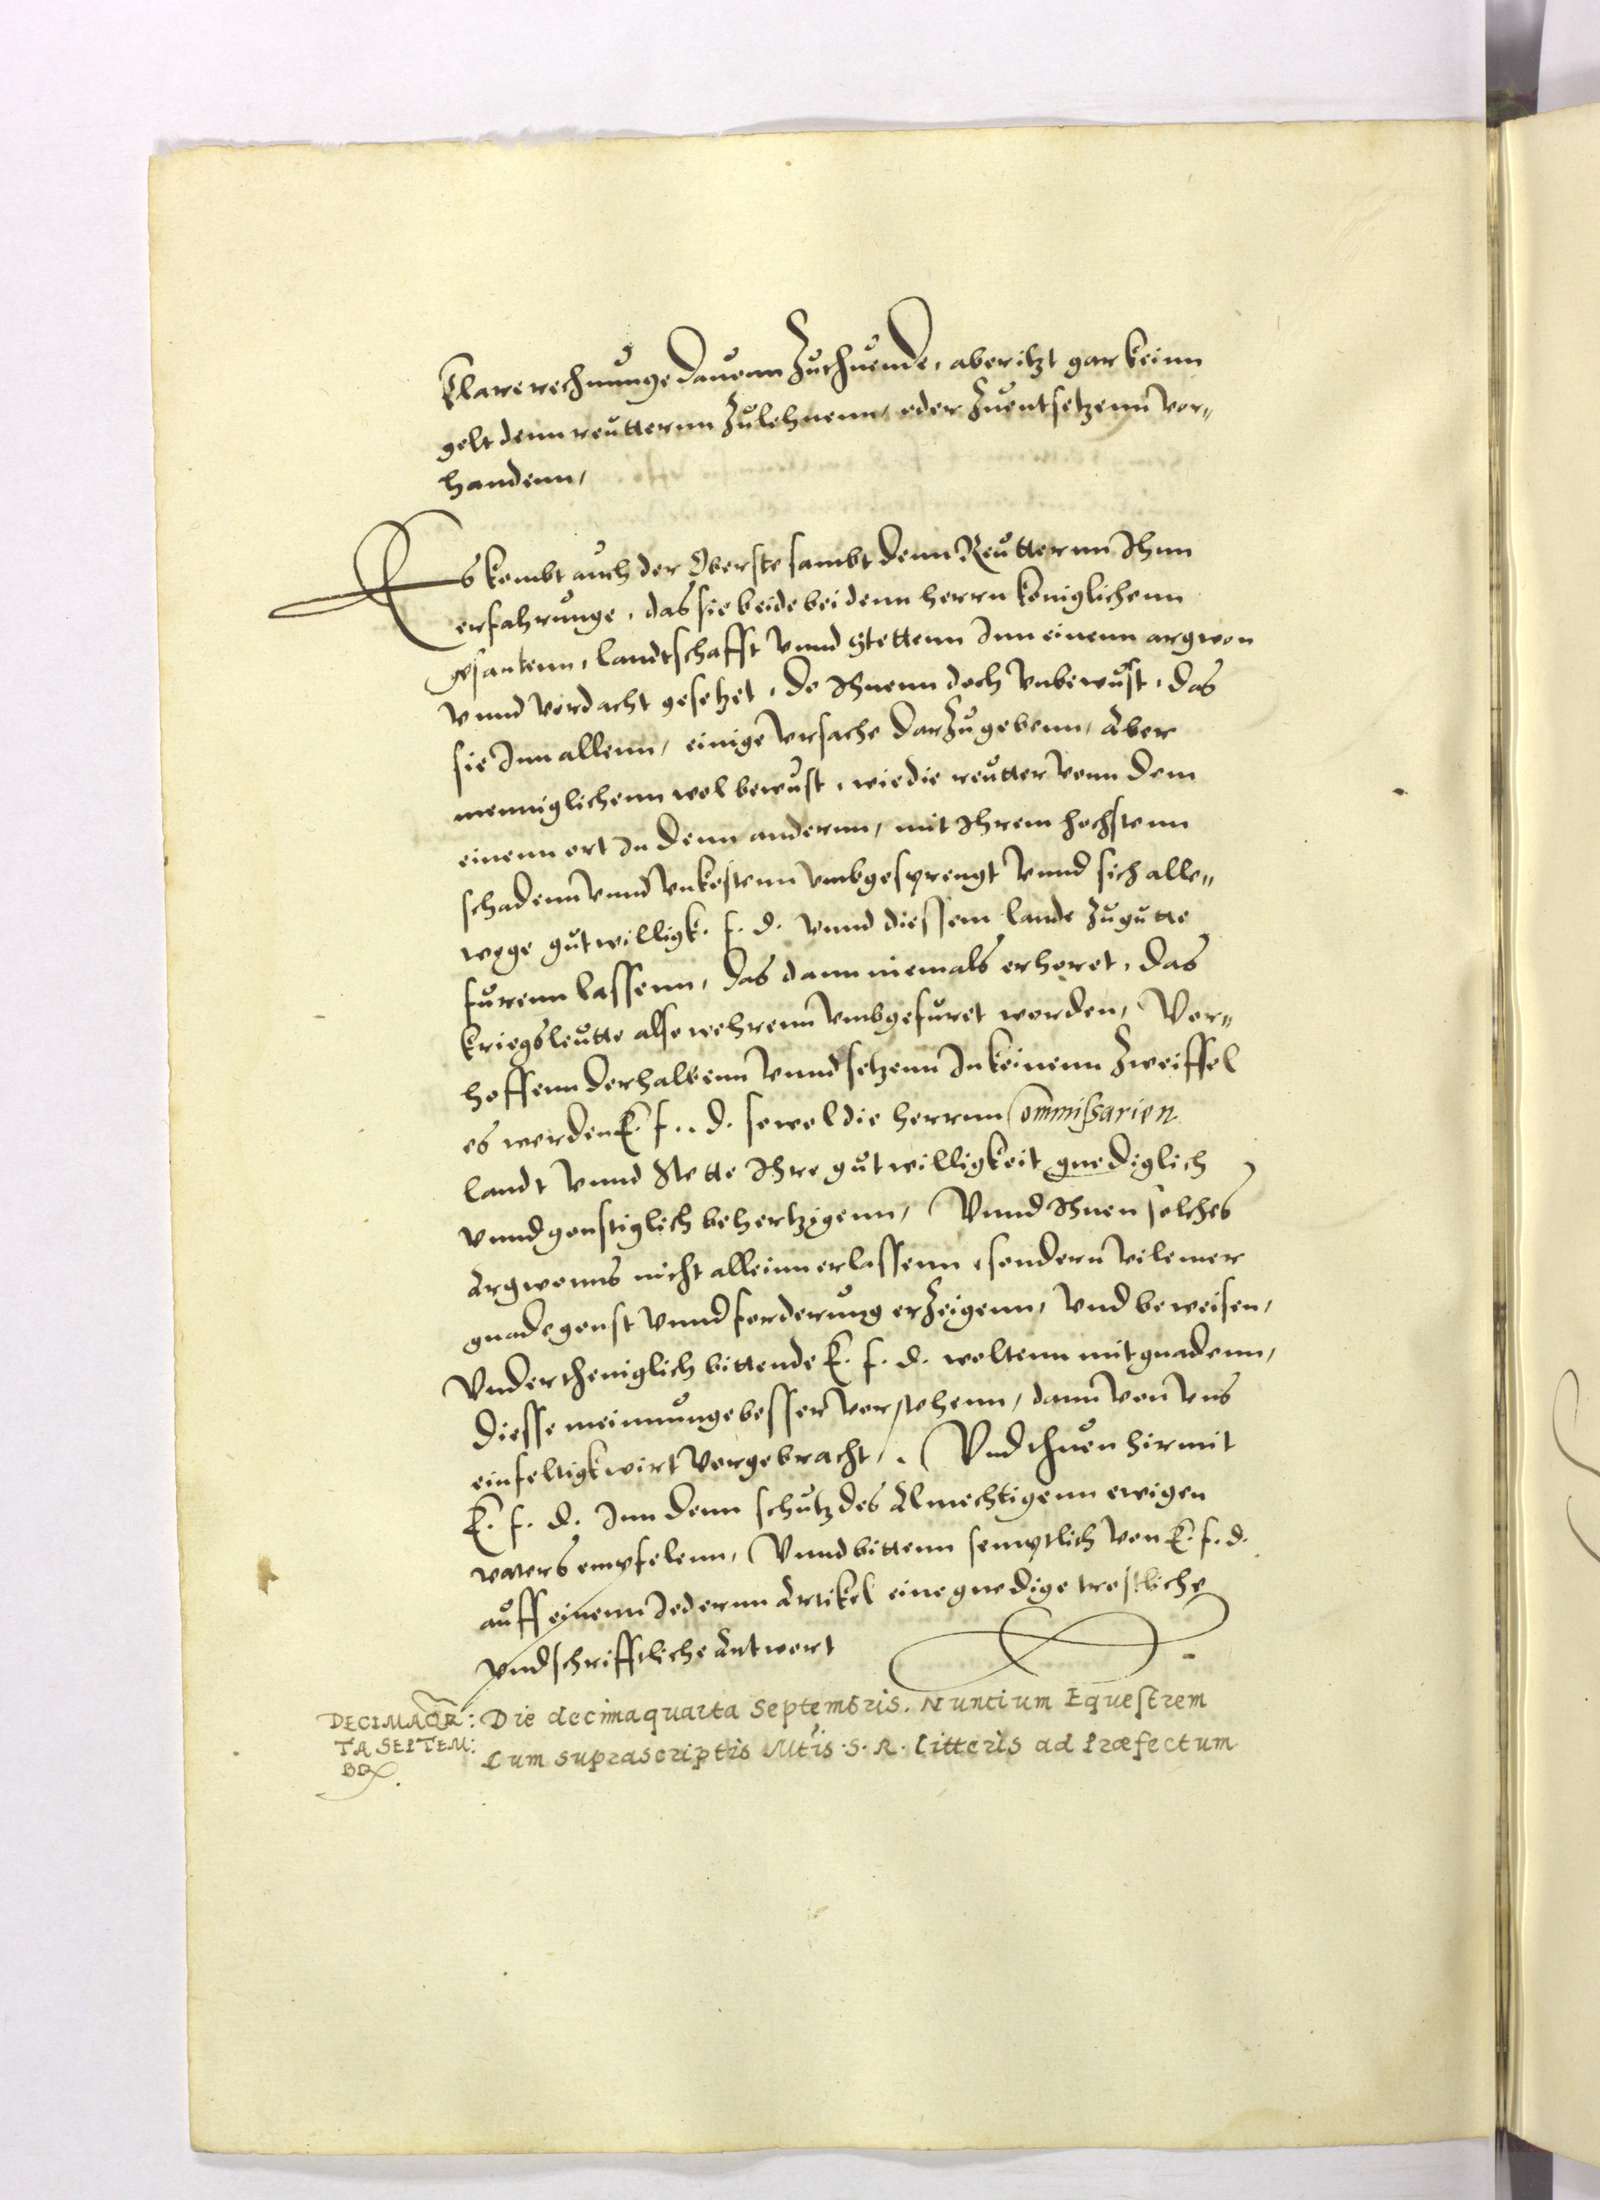 klare rechnunge dauonn Zuthuende, aber itzt gar keinn
gelt denn reutternn Zulehnenn, oder Zuentsetzenn vor„
handenn,
Es kombt auch der Oberste sambt denn Reutternn Ihnn
erfahrunge, das sie beide bei denn herrn koniglichenn
gesantenn, landtschafft vnnd Stettenn Inn einenn argwon
vnnd verdacht gesetzet, do Ihnenn doch vnbewust, das
sie Inn allenn, einige vrsache darzu gebenn, Aber
menniglichenn wol bewust, wie die reutter vonn dem
einenn ort In denn andernn, mit Ihrem hochstenn
schadenn vnnd vnkostenn vmbgesprengt vnnd sich alle„
wege gutwilligk. f. d. vnnd diessem lande Zugutte
furenn lassenn, das dann niemals erhoret, das
kriegsleutte also wehrenn vmbgefuret worden, Vor„
hoffenn derhalbenn vnnd setzenn In keinenn Zweiffel
es werden E. f. d. sowol die herrnn Commissarien
landt vnnd Stette Ihre gutwilligkeit gnediglich
vnnd gonstiglich behertzigenn, Vnnd Ihnen solches
Argwonns nicht alleinn erlassenn, sondern vilemer
gnade gonst vnnd forderung erzeigenn, vnd beweisen,
Vndertheniglich bittende E. f. d. woltenn mit gnadenn,
diesse meinnunge besser verstehenn, dann von vns
einfeltigk wirt vorgebracht, Vnd thuen hirmit
E. f. d. Inn denn schutz des Almechtigenn ewigen
vaters empfelenn, Vnnd bittenn semptlich von E. f. d.
auff einenn Jedernn Artikel eine gnedige trostliche
vnd schrifftliche Antwort
DECIMAQR: Die decimaquarta Septembris. Nuntium Equestrem
TA SEPTEM: Cum suprascriptis Mtis S. R. Litteris ad Præfectum
BR.